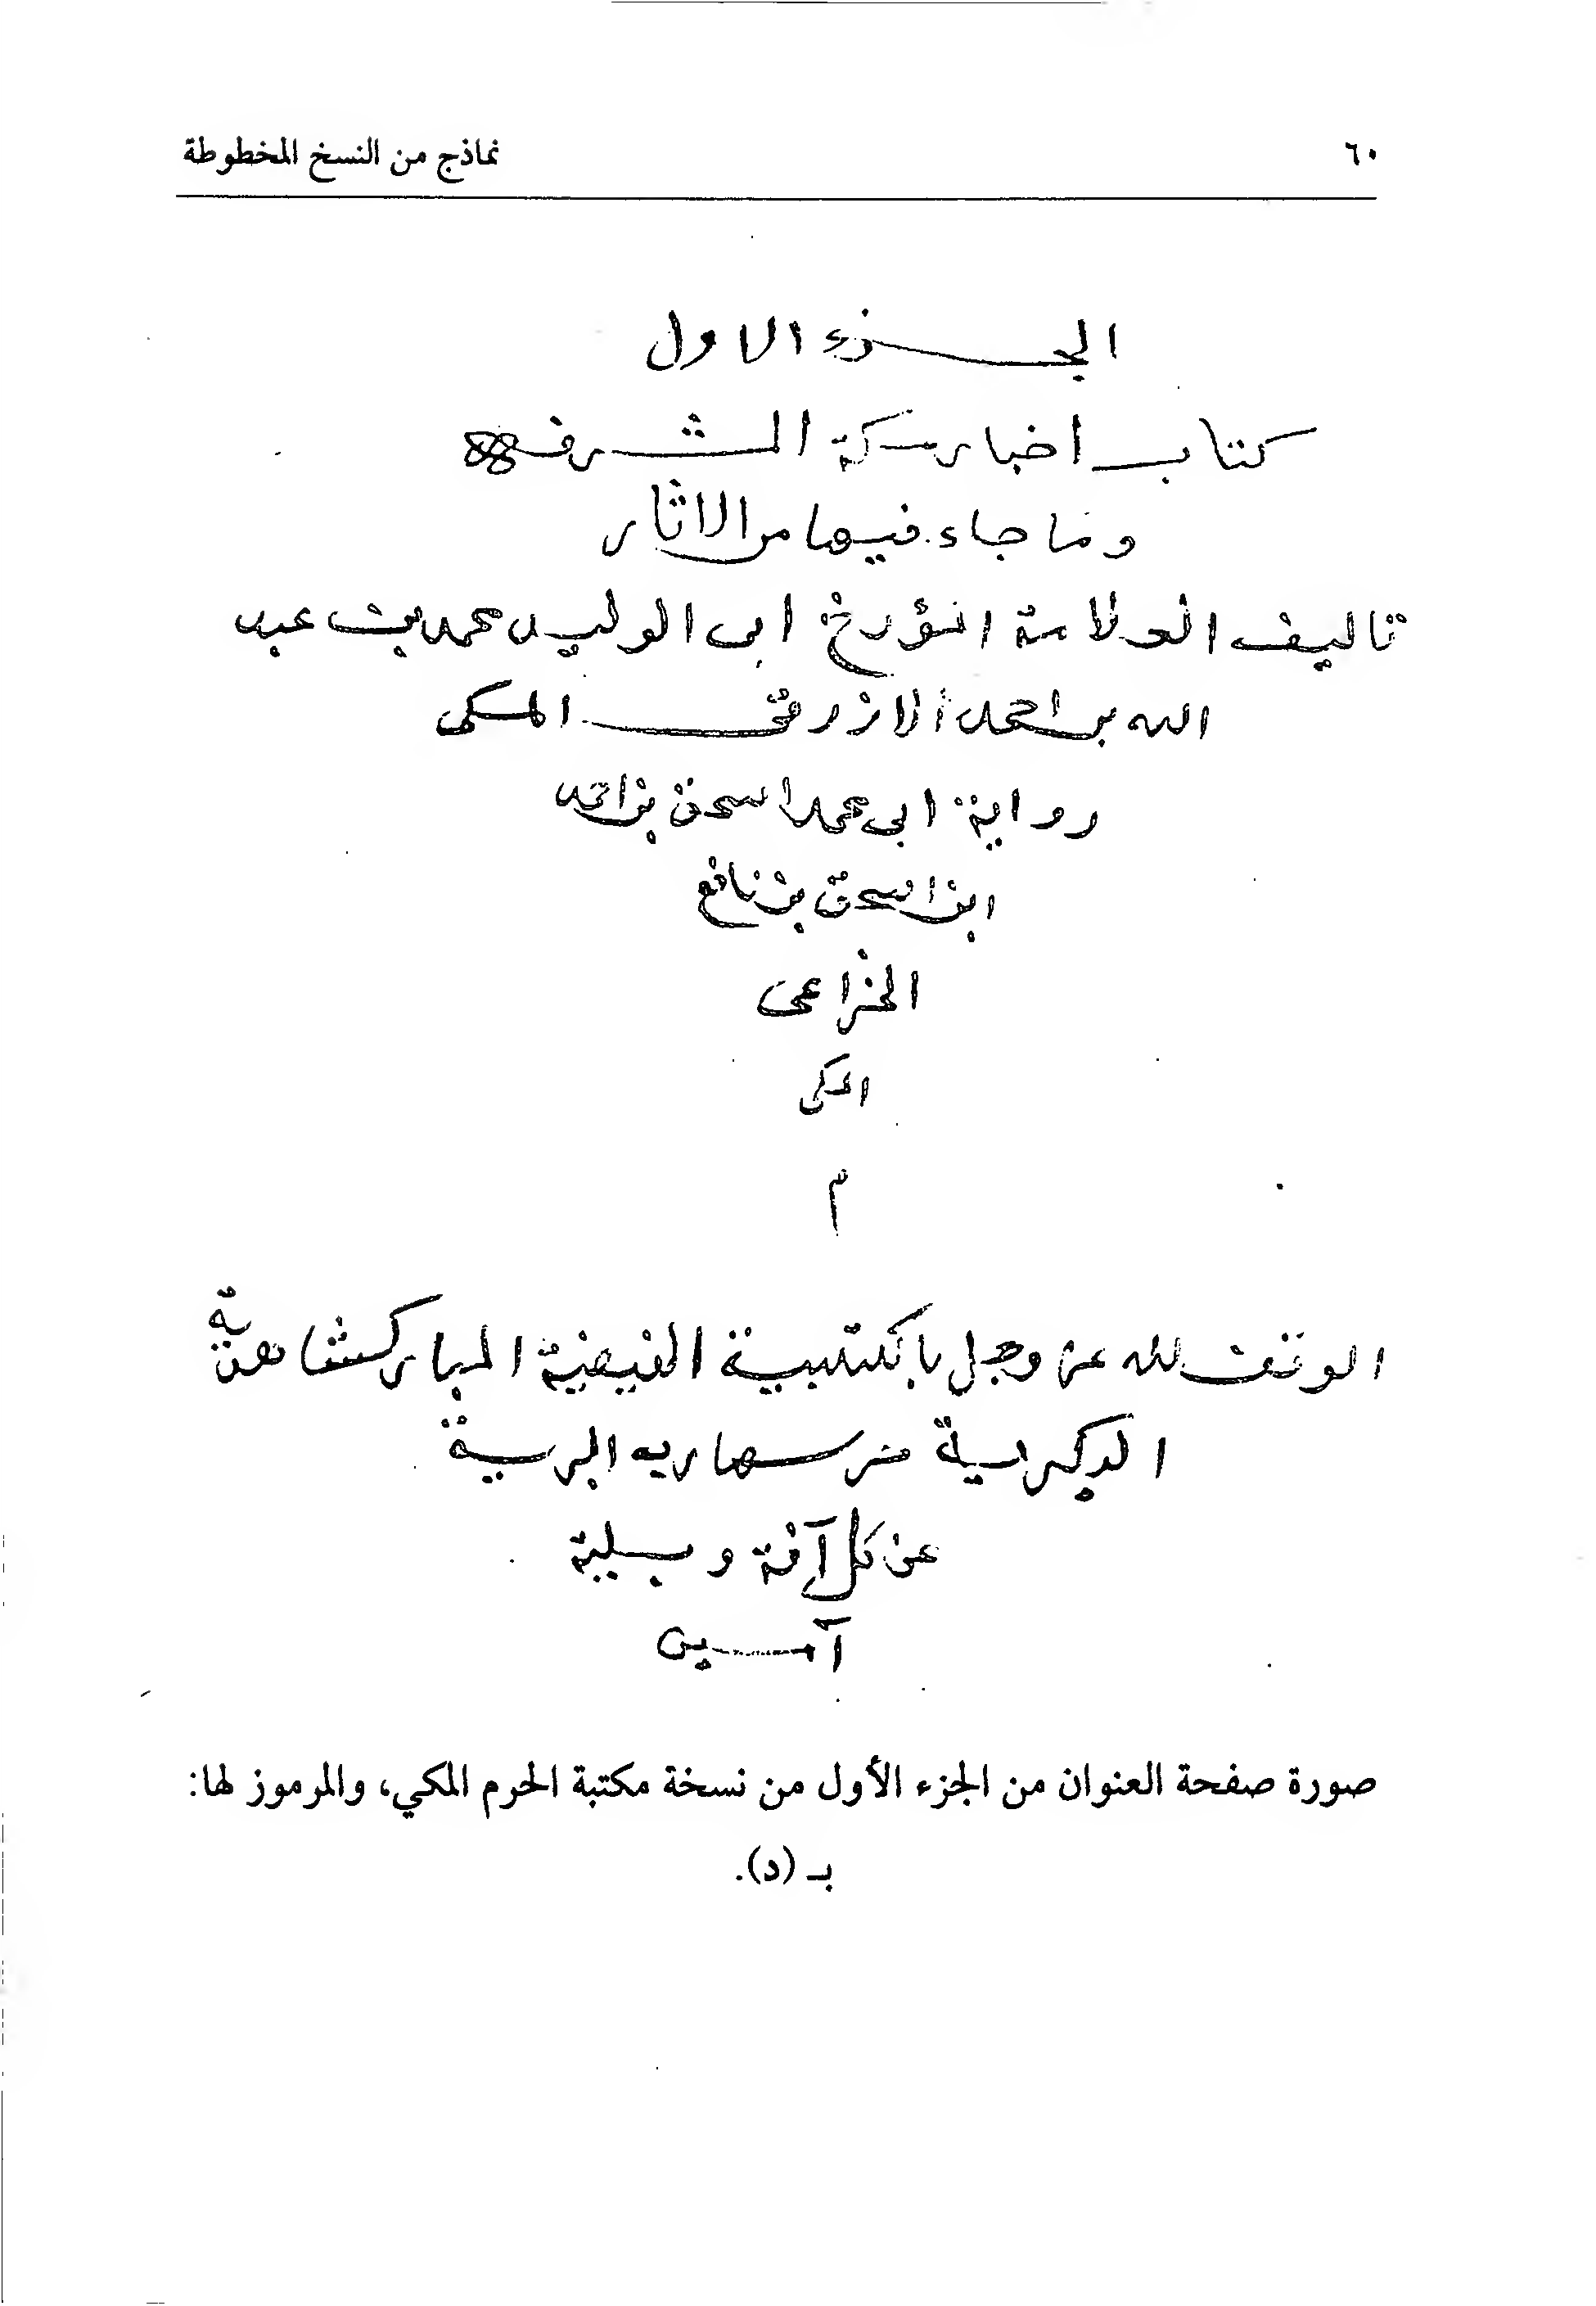 ٦٠ نماذج من النسخ المخطوطة
الجزء الاول
كتاب اخبار مكة المشرفه
وما جاء فيها من الاثار
تاليف العلامة المؤرخ ابى الوليد محمد بن عبد
الله بن احمد الازرقى المكى
رواية ابى محمد اسحق بن احمد
ابن اسحق بن نافع
الخزاعى
المكى
م
الوقف لله عز وجل بالكتبية الفيضية المباركشاهية
البرية
عن كل آفة وبلية
آمين
صورة صفحة العنوان من الجزء الأول من نسخة مكتبة الحرم المكي، والمرموز لها:
بـ (د).